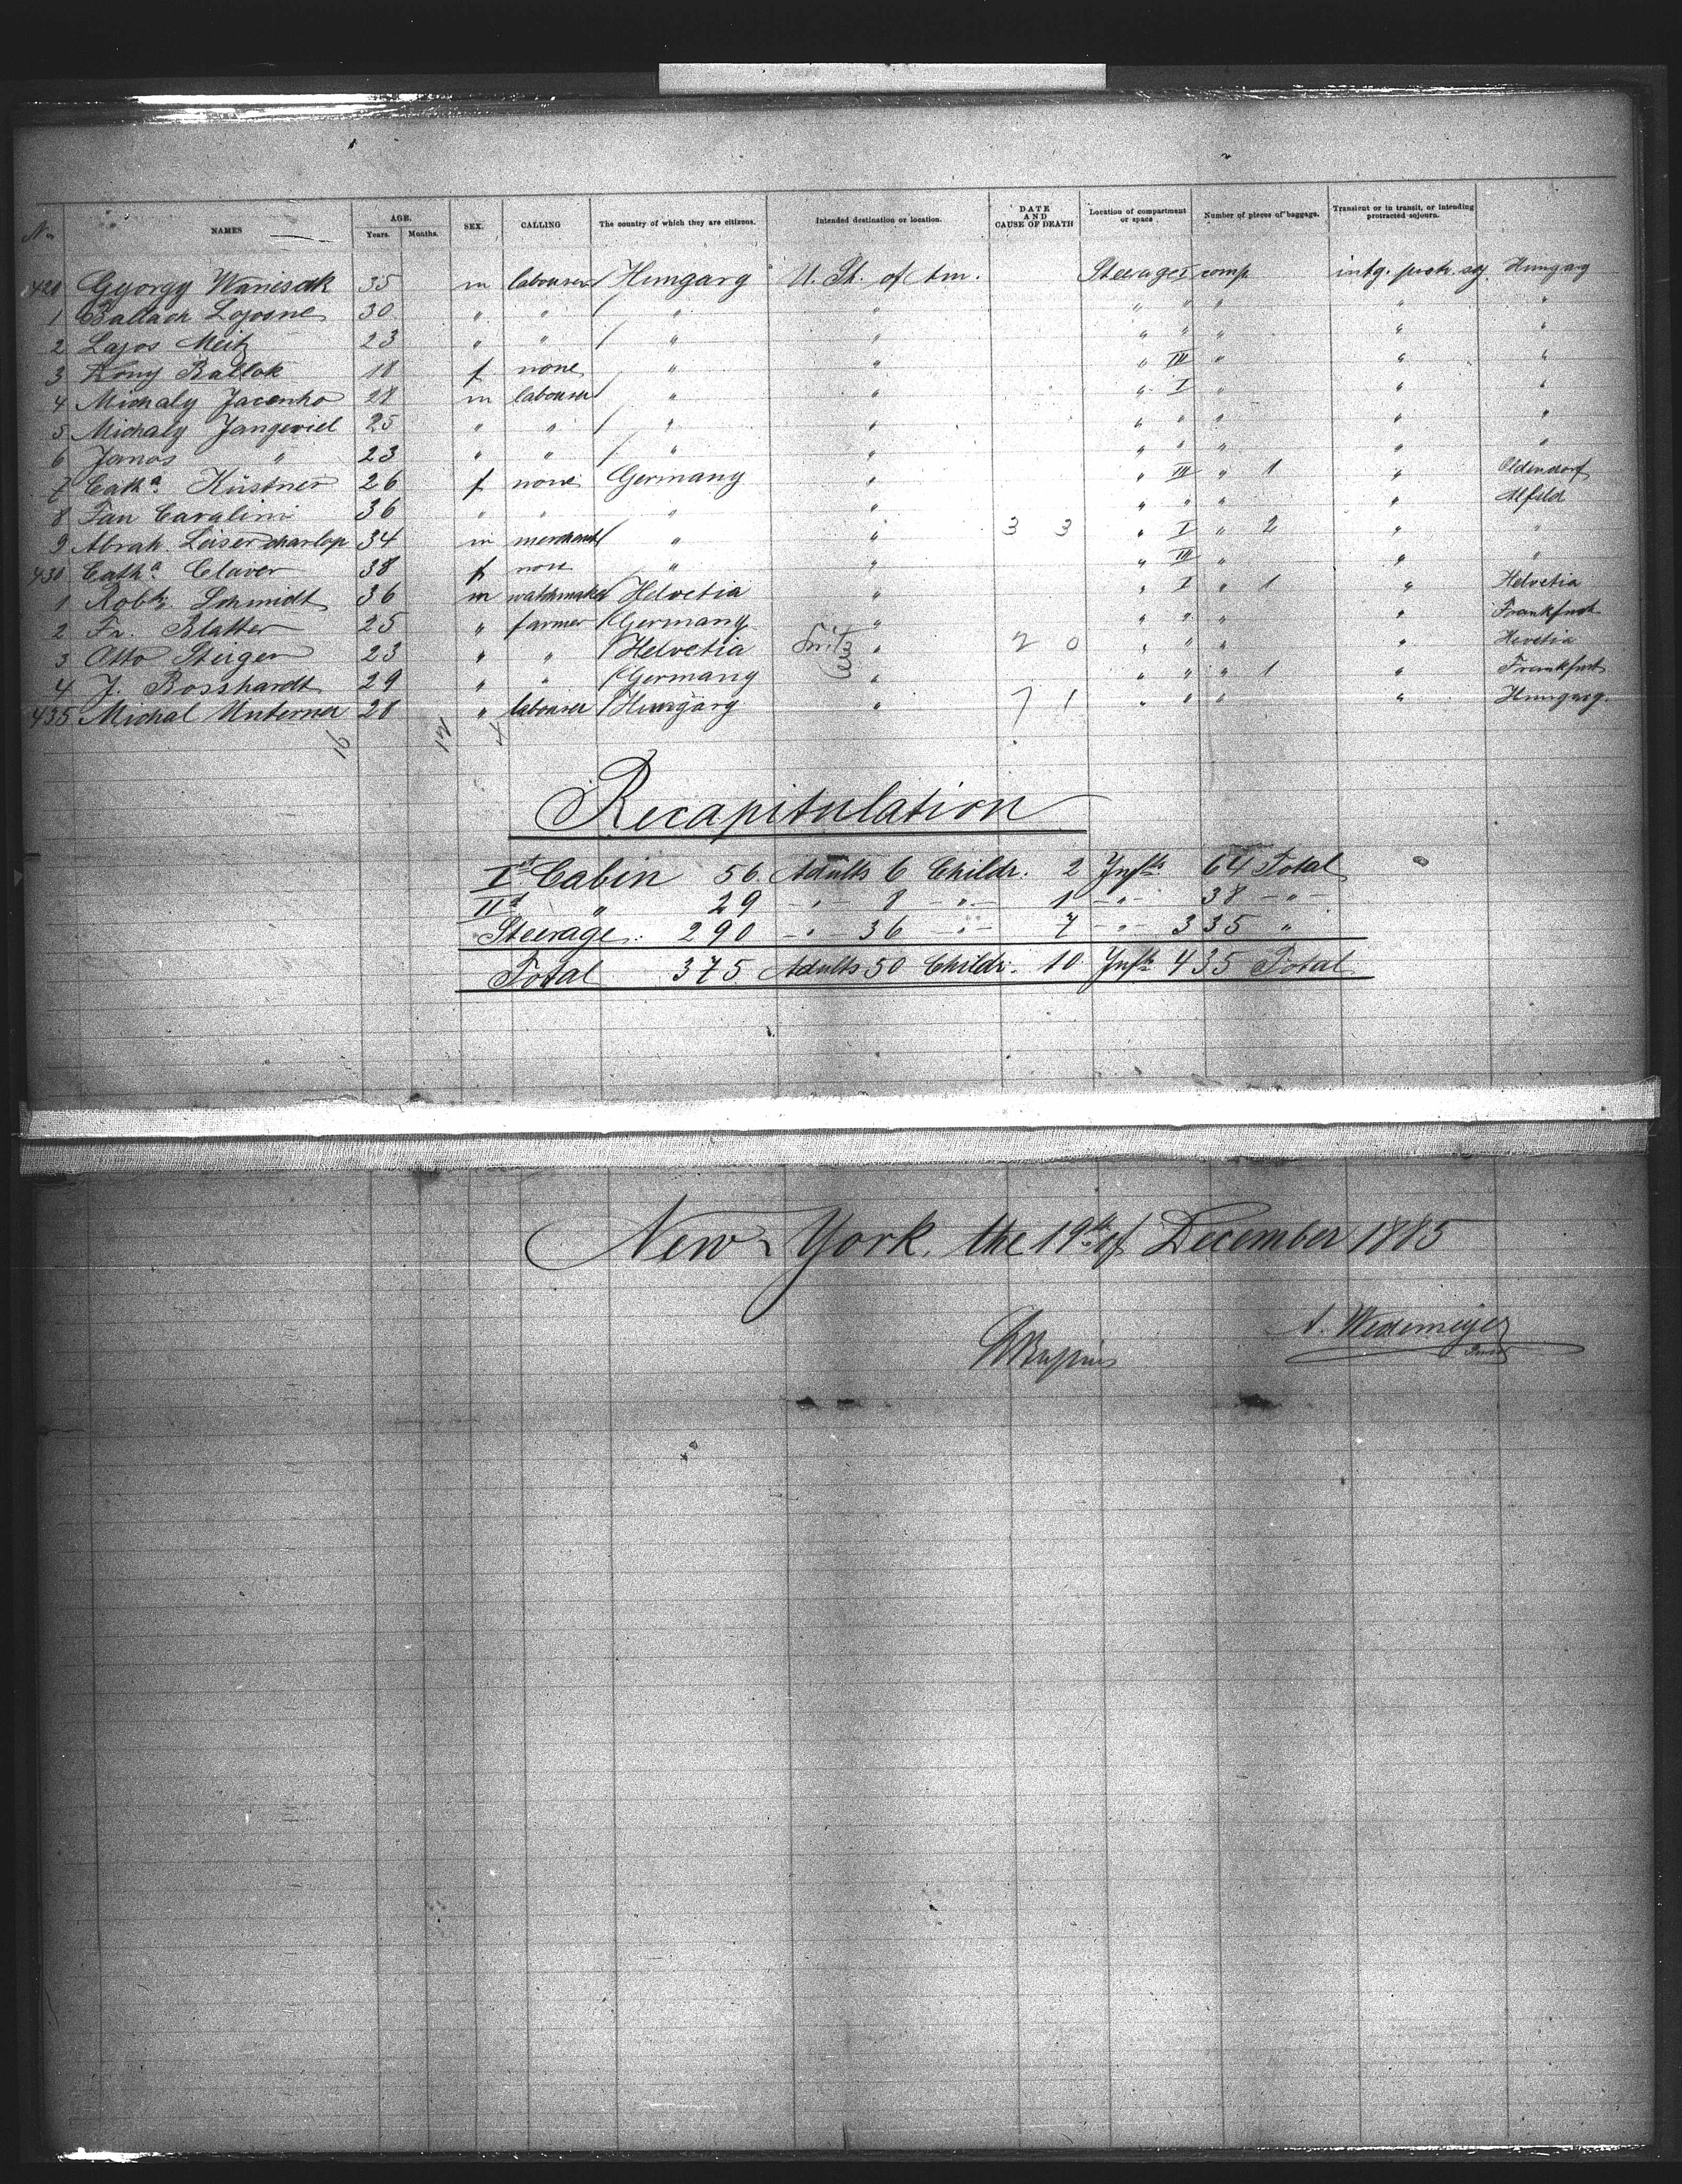 No. NAMES AGE. Years. Months. SEX. CALLING The country of which they are citizens. Intended destination or location. DATE AND CAUSE OF DEATH Location of compartment or space Number of pieces of baggage. Transient or in transit, or intending protracted sojourn.
420 Gyorgy Waniesak 35 m labourer / Hungary U. St. of Am. Steerage I comp intg. protr. soj. Hungary
1 Ballach Lojosne 30 " " / " " " " " " "
2 Lajos Meitz 23 " " / " " " " " " "
3 Rony Ballok 18 f none " " " III " " "
4 Michaly Jacenko 28 m labourer / " " " I " " "
5 Michaly Jangeviel 25 " " / " " " " " " "
6 Janos " 23 " " / " " " " " " "
7 Catha. Küstner 26 f none Germany " " III " 1 " Oldendorf
8 Fan Caralini 36 " " " " " " " " Alfeld
9 Abrah. Leisercharlop 34 m merchant / " " 3 3 " I " 2 " "
430 Catha. Claver 38 f none " " " III " " "
1 Robt. Schmidt 36 m watchmaker Helvetia " " I " 1 " Helvetia
2 Fr. Blatter 25 " farmer / Germany " " " " " Frankfurt
3 Otto Steiger 23 " " / Helvetia " 2 0 " " " " Hevetia
4 J. Bosshardt 29 " " / Germany " " " " 1 " Frankfurt
435 Michal Unterner 28 " labourer / Hungary " 7 1 " " " " Hungary.
16 12 4
Recapitulation
Ist Cabin 56 Adults 6 Childr. 2 Infts. 64 Total
IId " 29 -"- 8 -"- 1 -"- 38 -"-
Steerage: 290 -"- 36 -"- 7 -"- 335 "
Total 375 Adults 50 Childr. 10 Infts 435 Total
New York, the 19th of December 1885
A. Wedemeyer